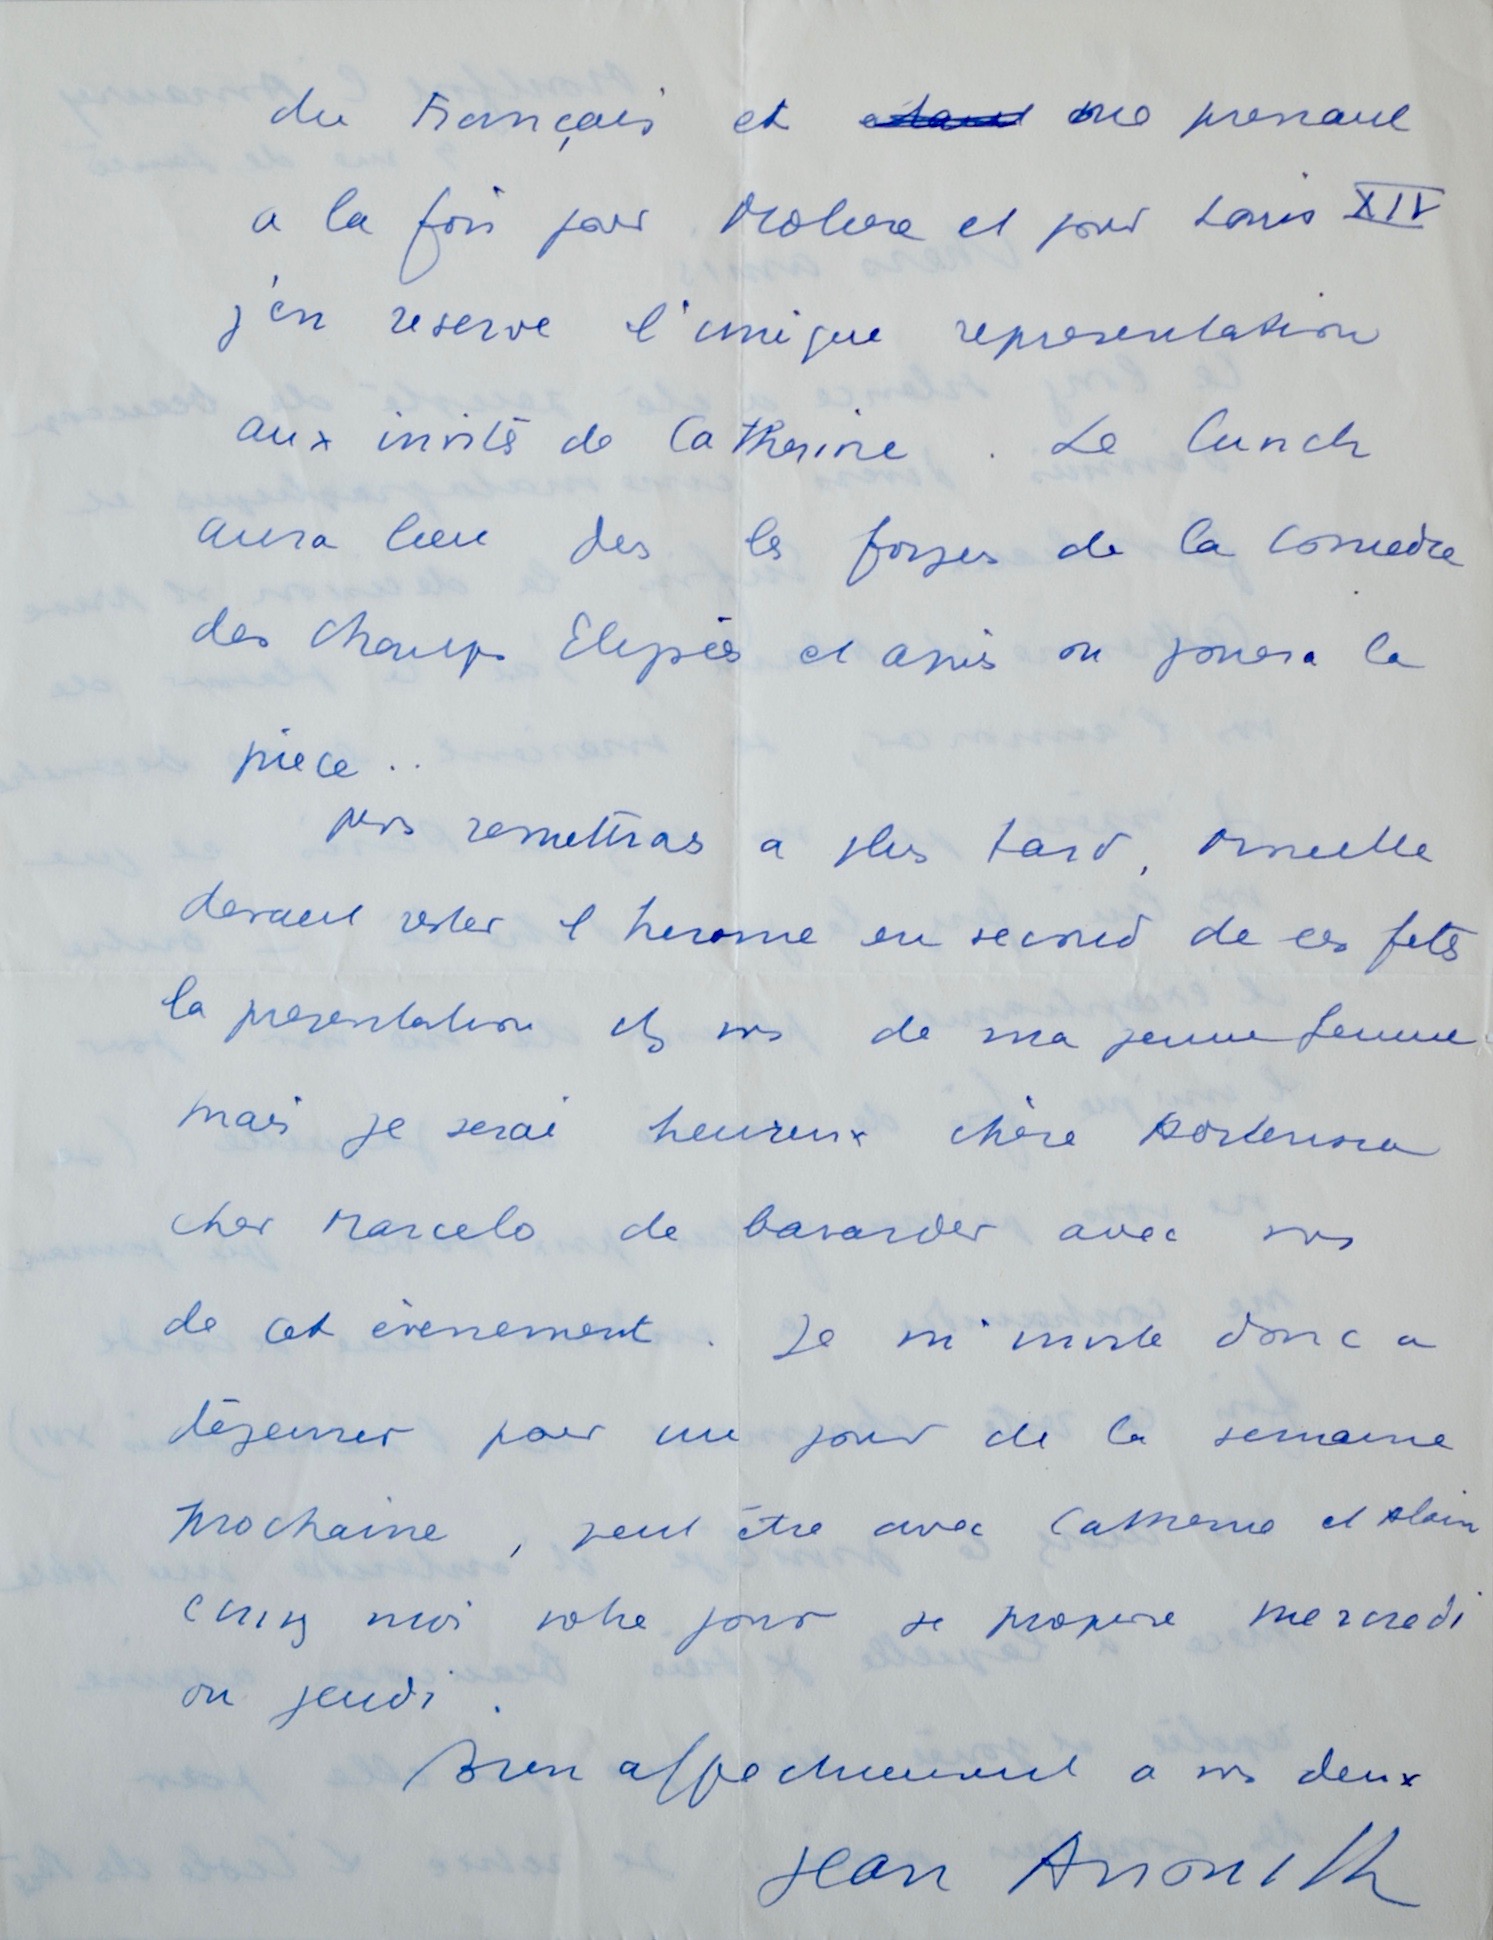 du Français et me prenant
a la fois pour Moliere et pour Louis XIV
j'en reserve l'unique representation
aux invités de Catherine. Le lunch
aura lieu des les forges de la Comedie
des Champs Elysées et après on jouera la
piece..
remettras a plus tard,
devant rester l'heroine en second de ces fetes
la presentation de ma jeune femme
mais je serai heureux chère Hortensia
cher Marcelo de bavarder avec vous
de cet évènement. Je m'invite donc a
déjeuner pour un jour de la semaine
prochaine, peut être avec Catherine et Alain
moi votre jour je propose mercredi
ou jeudi.
Bien affectueusement a vous deux
Jean Anouilh